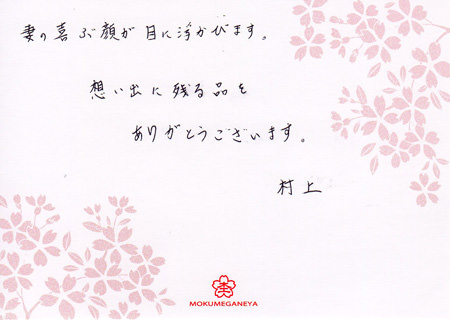 妻の喜ぶ顔が目に浮かびます。
想い出に残る品を
ありがとうございます。
村上
杢
MOKUMEGANEYA